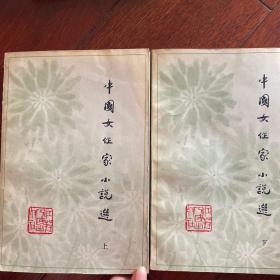 中國女作家小説選
上
中國女作家小説選
下